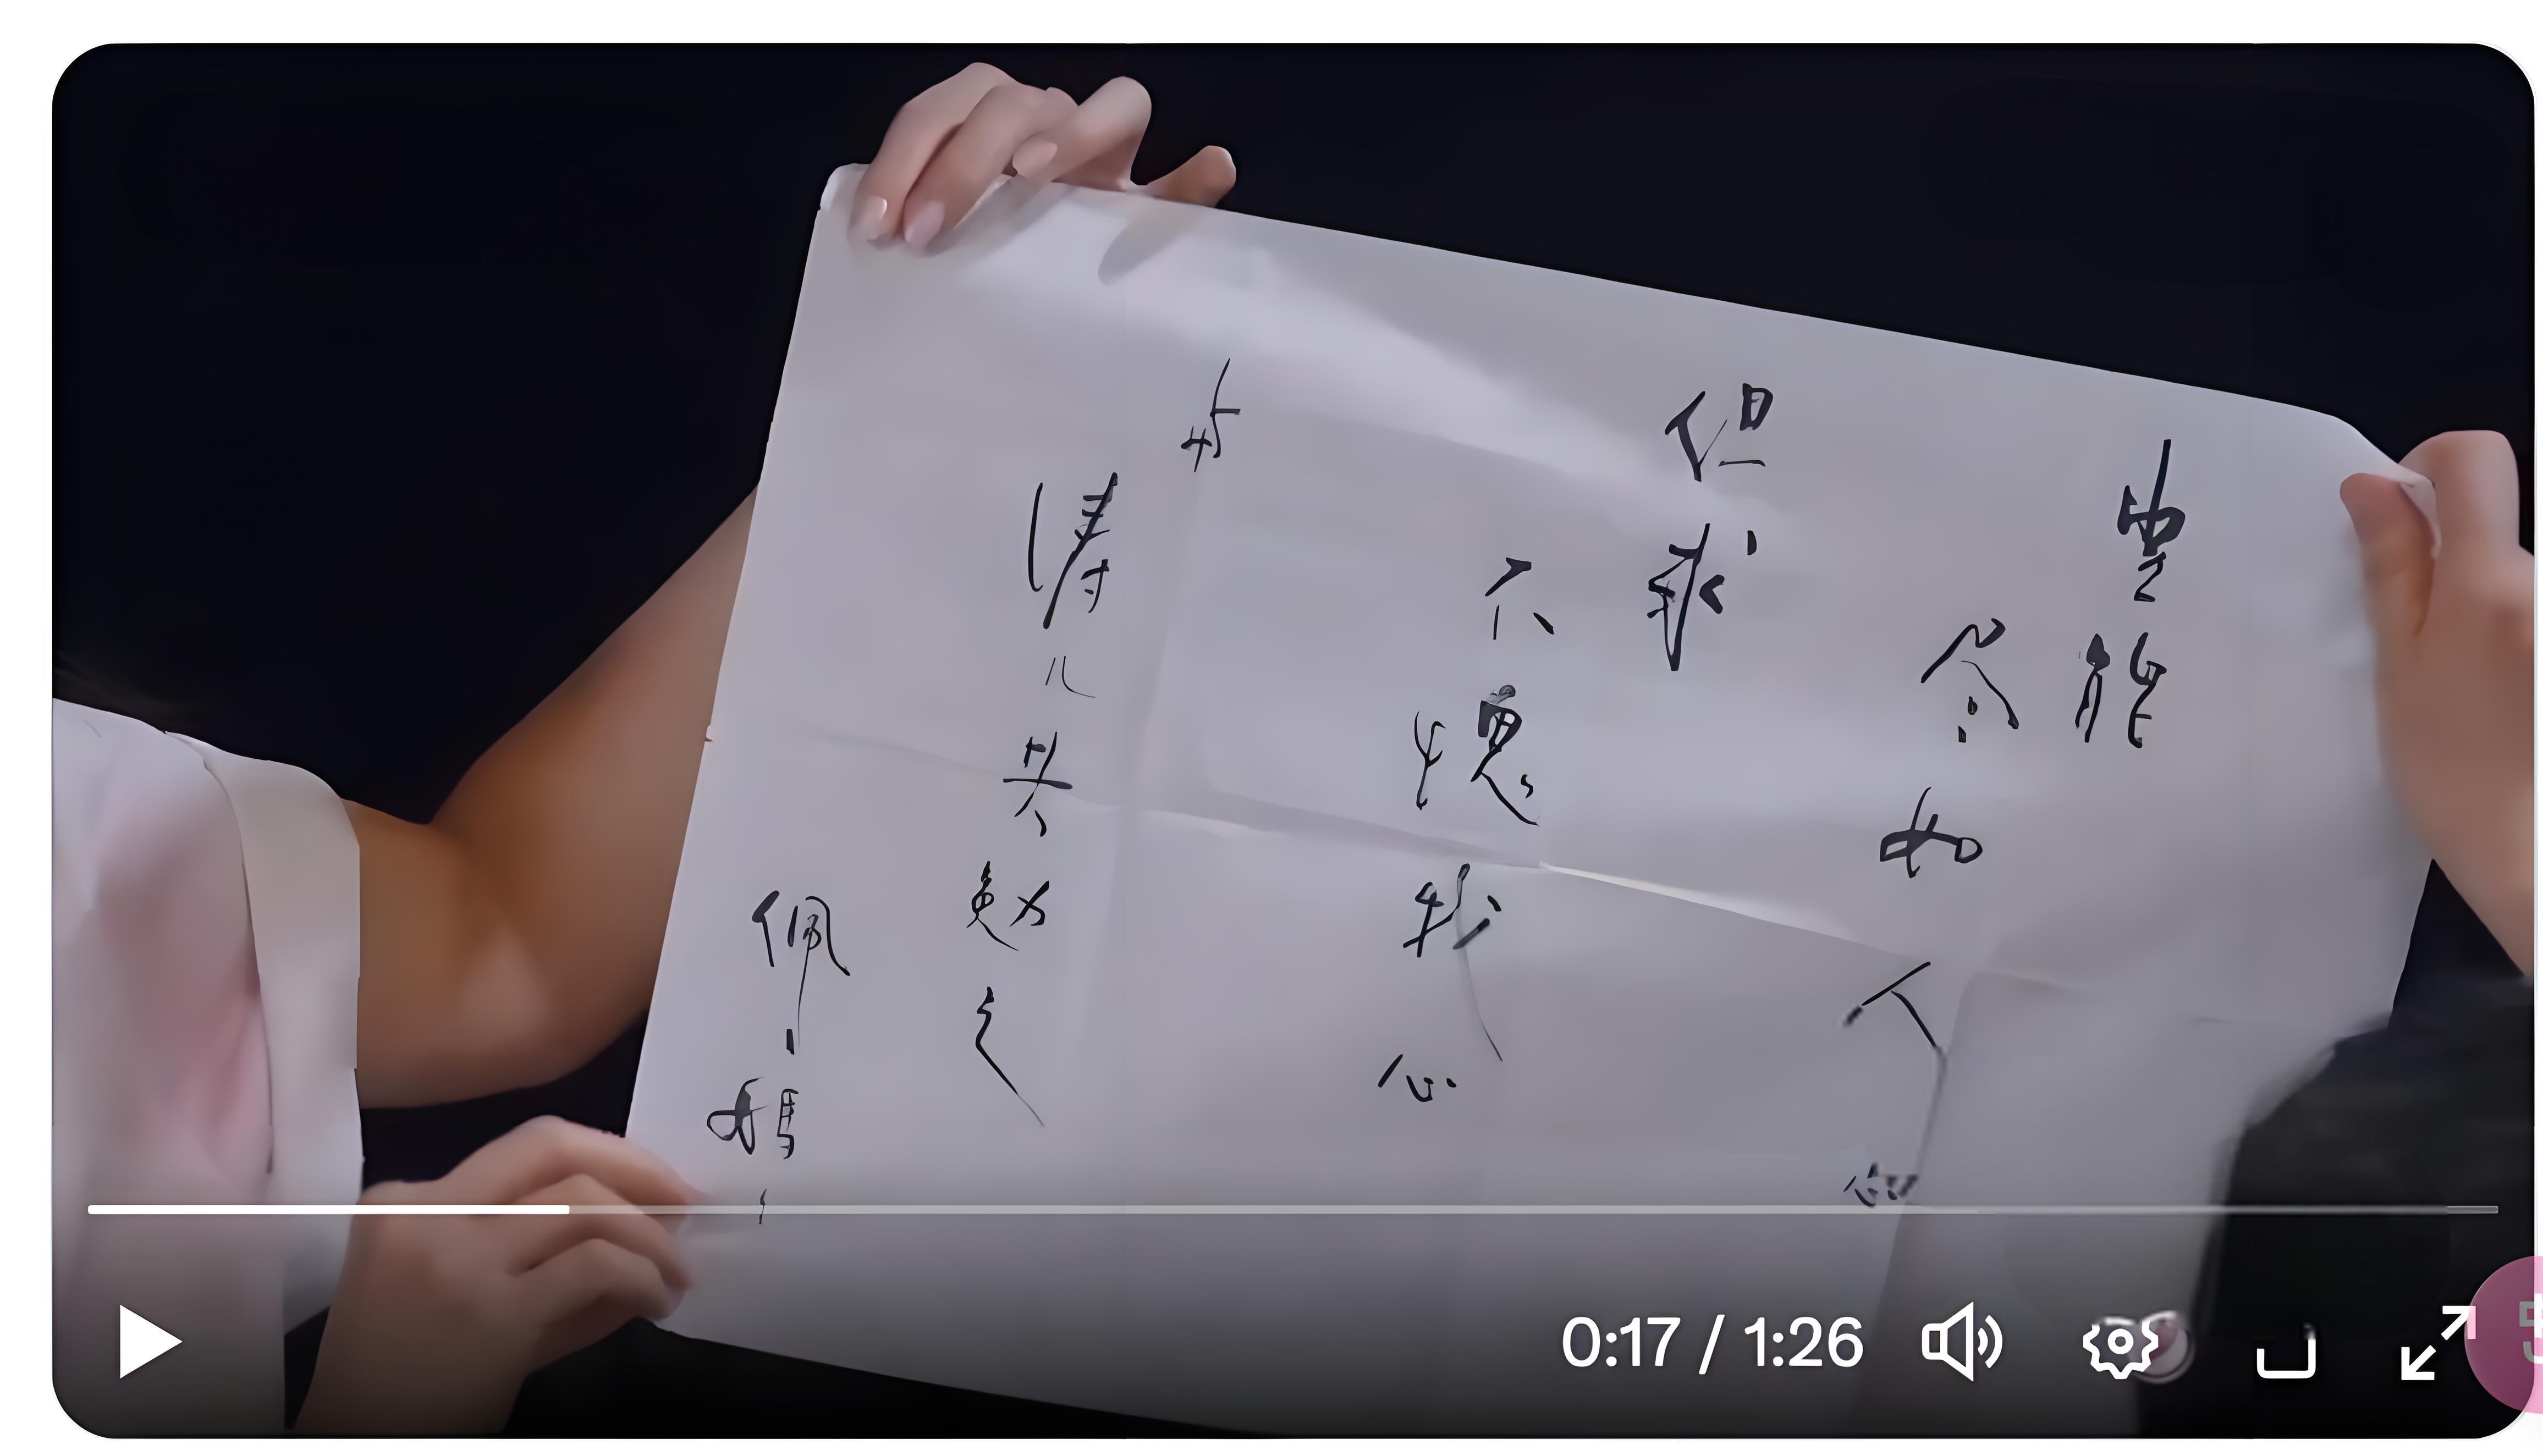 豈能
尽如人意
但求
不愧我心
与
涛儿共勉之
佩佩媽媽
0:17 / 1:26